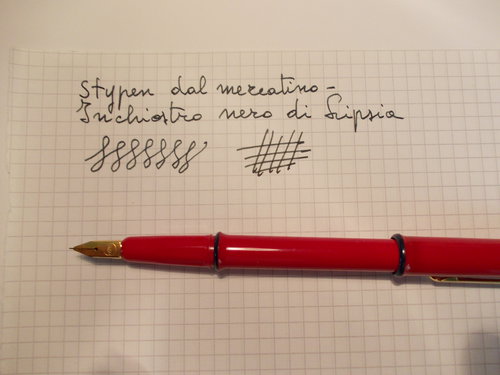 Stypen dal mercatino-
Inchiostro nero di Lipsia